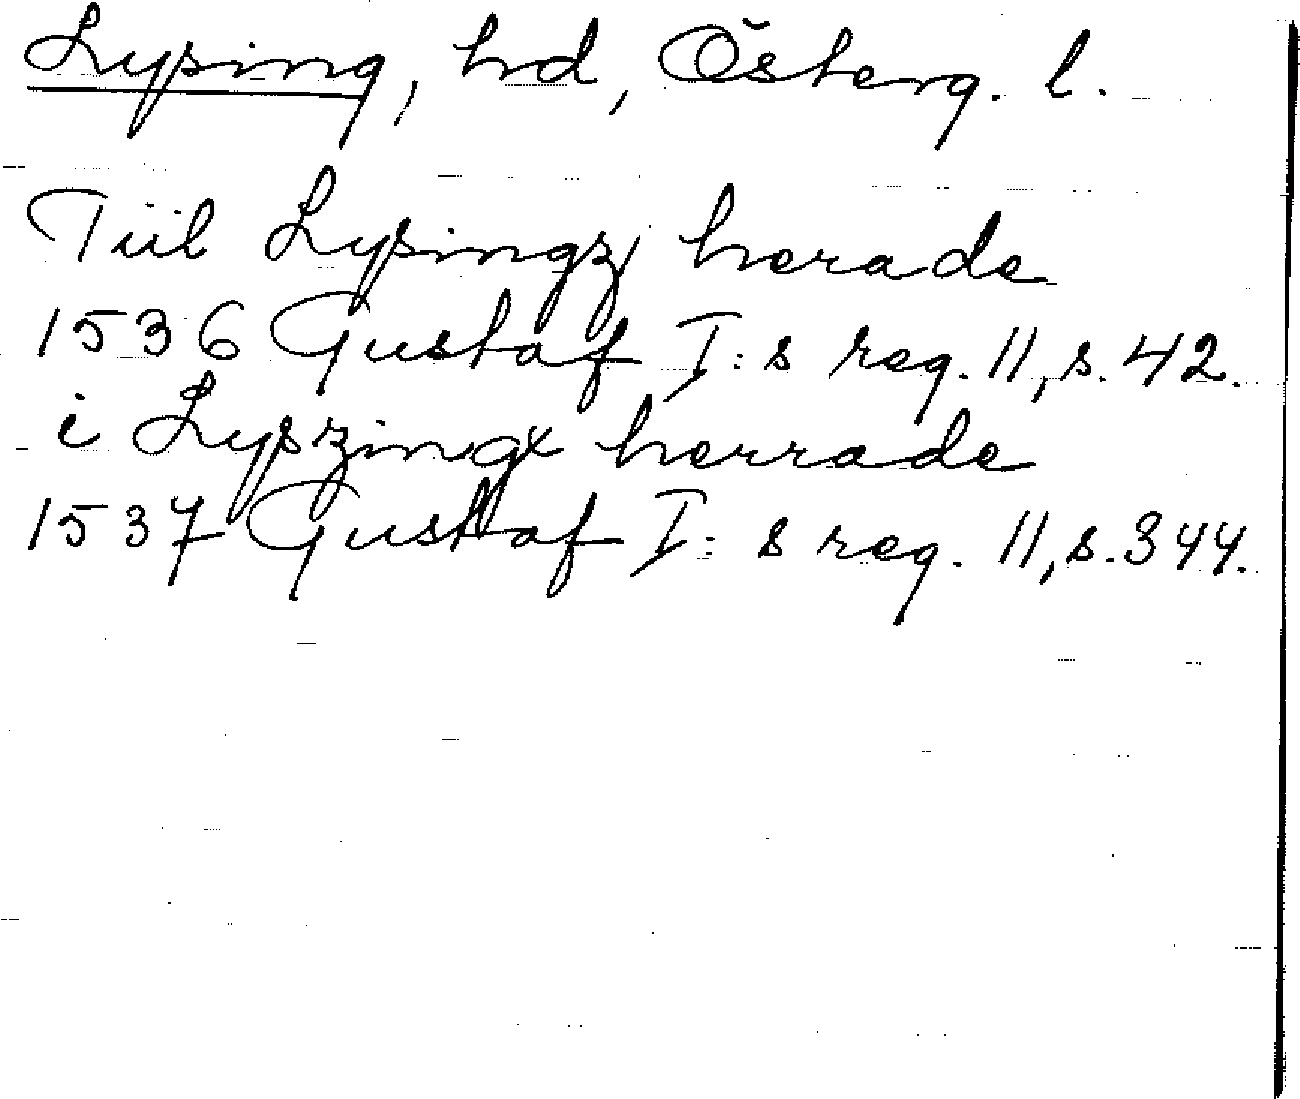 Lysing, hd, Österg. l.
Tiil Lysingz herade
1536 Gustaf I:s reg. 11, s. 42.
i Lyszingx herrade
1537 Gustaf I:s reg. 11, s. 344.